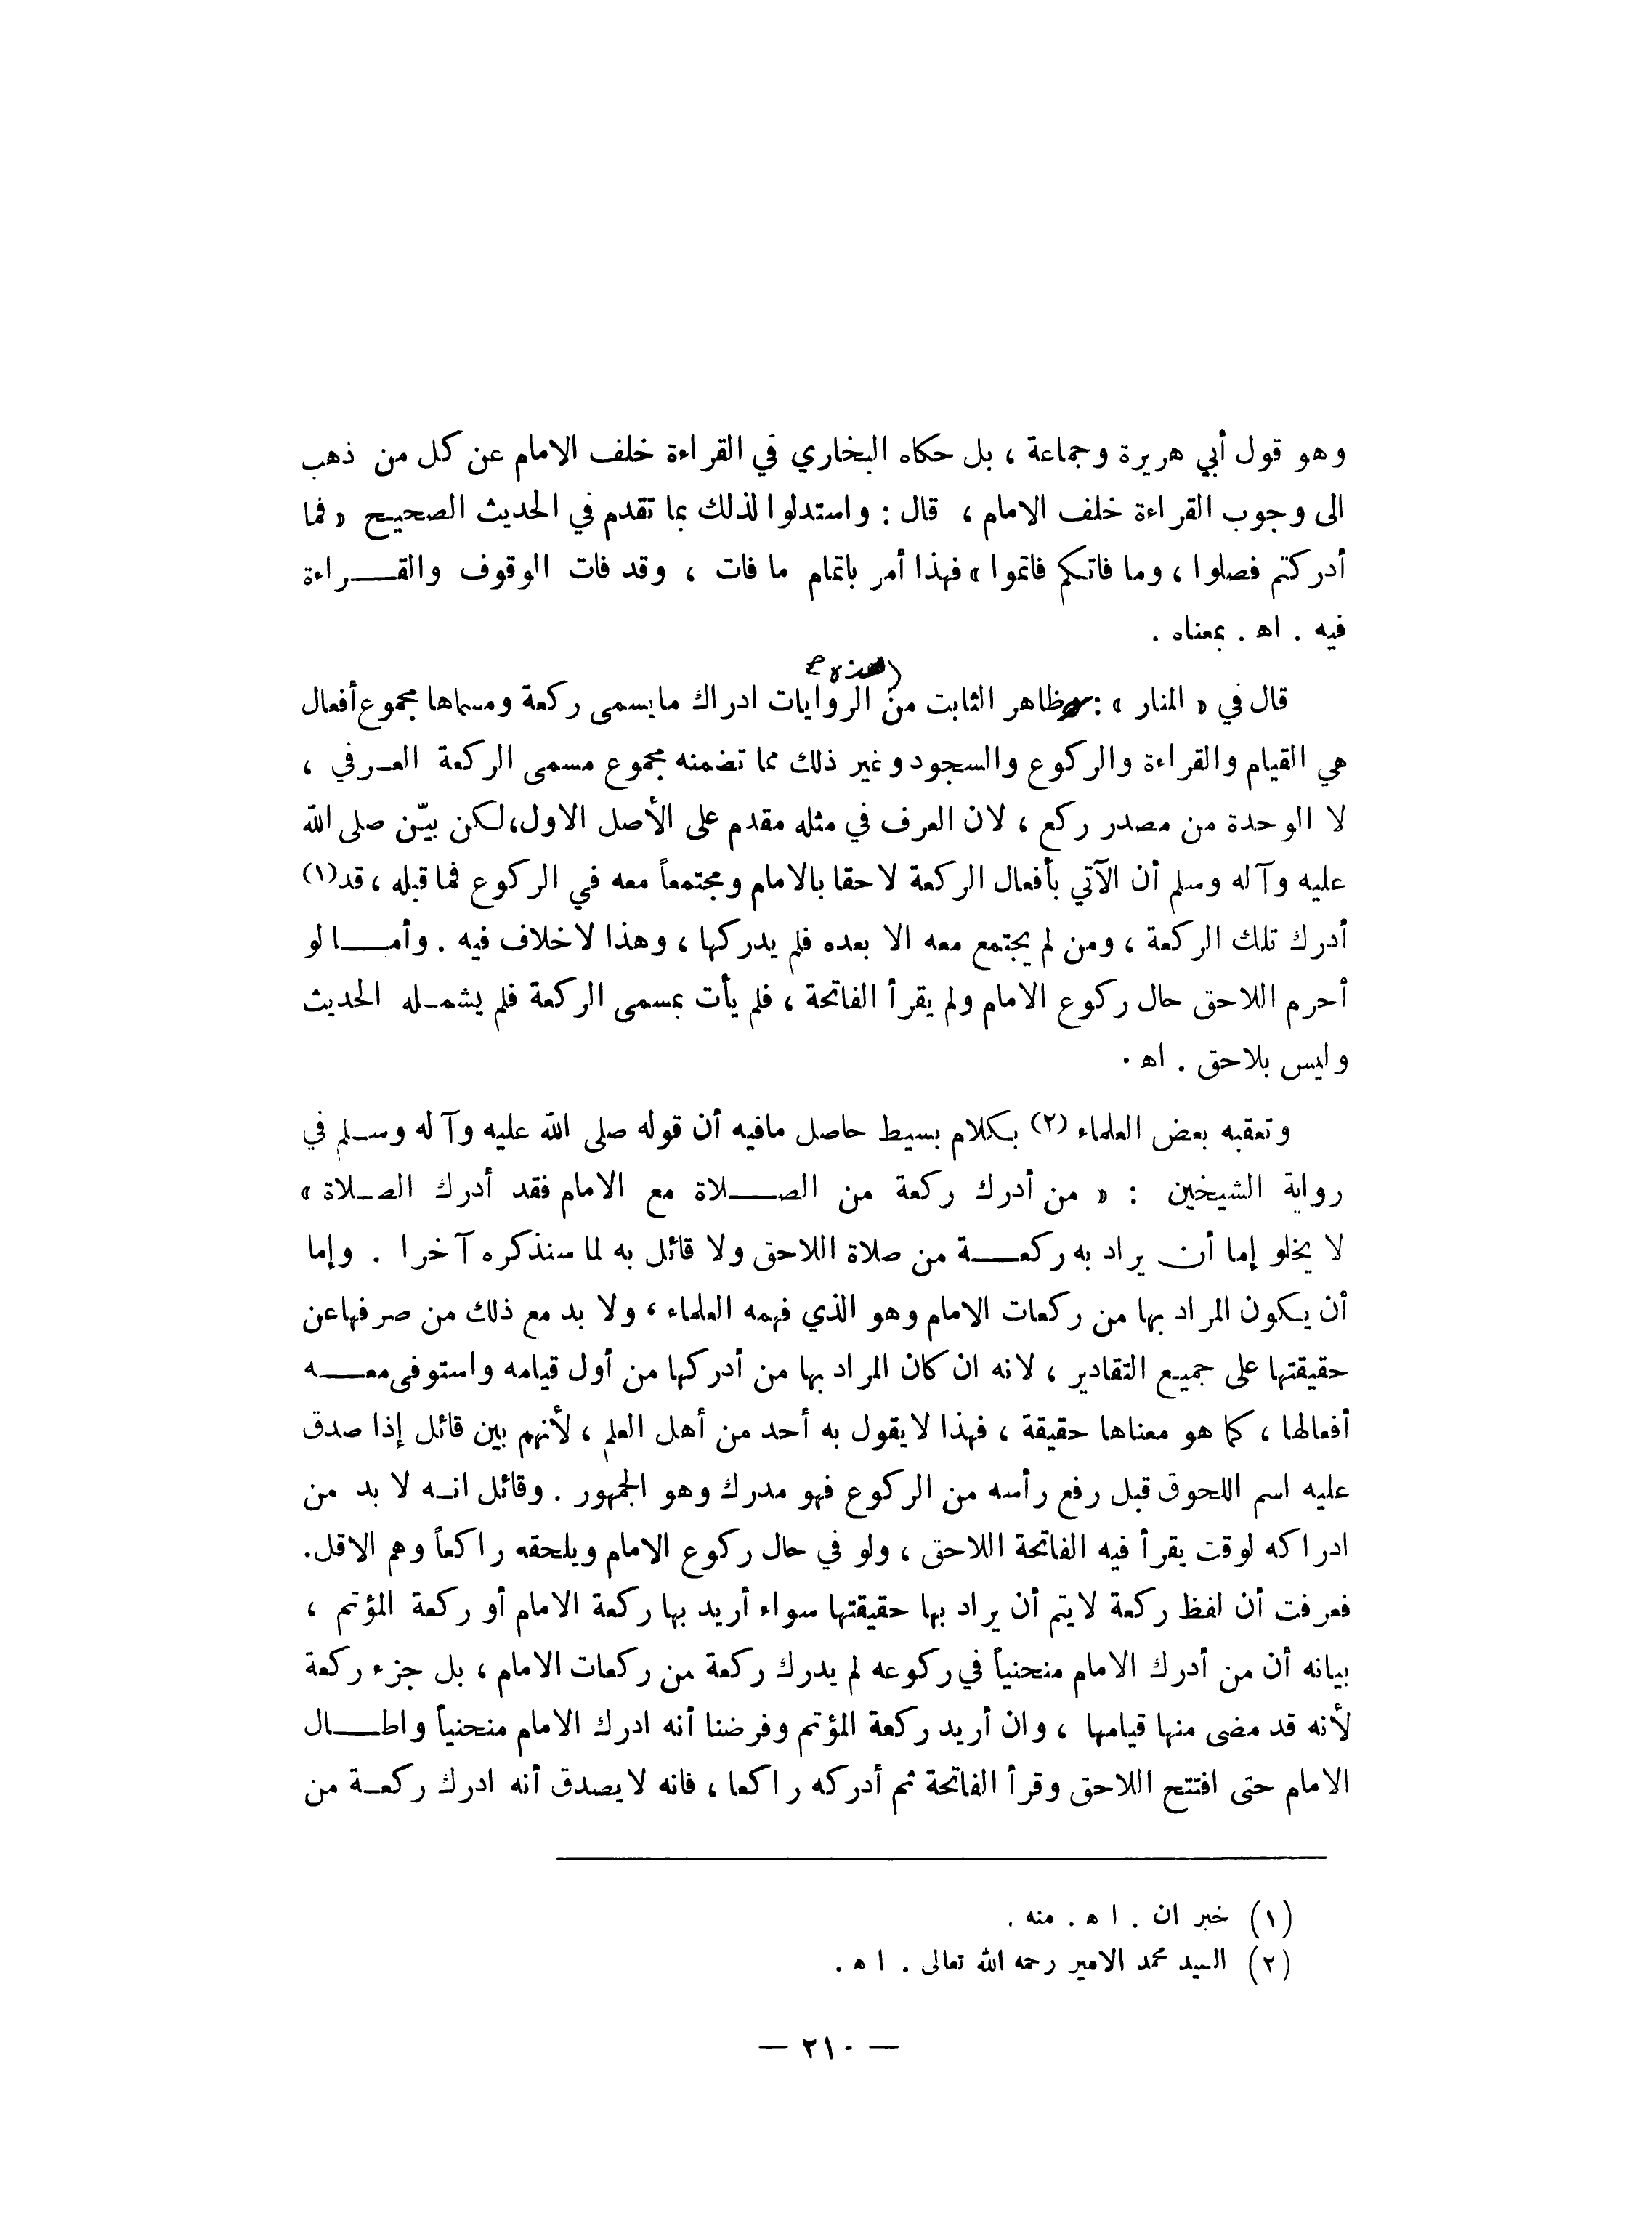 وهو قول أبي هريرة وجماعة ، بل حكاه البخاري في القراءة خلف الامام عن كل من ذهب
الى وجوب القراءة خلف الامام ، قال : واستدلوا لذلك بما تقدم في الحديث الصحيح « فما
أدركتم فصلوا ، وما فاتكم فاتموا » فهذا أمر باتمام ما فات ، وقد فات الوقوف والقراءة
فيه . اه . بمعناه .
قال في « المنار » : ظاهر الثابت من الروايات ادراك ما يسمى ركعة ومسماها مجموع أفعال
هي القيام والقراءة والركوع والسجود وغير ذلك مما تضمنه مجموع مسمى الركعة العرفي ،
لا الوحدة من مصدر ركع ، لان العرف في مثله مقدم على الأصل الاول، لكن بيّن صلى الله
عليه وآله وسلم أن الآتي بأفعال الركعة لاحقا بالامام ومجتمعاً معه في الركوع فما قبله ، قد (١)
أدرك تلك الركعة ، ومن لم يجتمع معه الا بعده فلم يدركها ، وهذا لا خلاف فيه . وأما لو
أحرم اللاحق حال ركوع الامام ولم يقرأ الفاتحة ، فلم يأت بمسمى الركعة فلم يشمله الحديث
وليس بلاحق . اه .
وتعقبه بعض العلماء (٢) بكلام بسيط حاصل مافيه أن قوله صلى الله عليه وآله وسلم في
رواية الشيخين : « من أدرك ركعة من الصلاة مع الامام فقد أدرك الصلاة »
لا يخلو إما أن يراد به ركعة من صلاة اللاحق ولا قائل به لما سنذكره آخرا . وإما
أن يكون المراد بها من ركعات الامام وهو الذي فهمه العلماء ، ولا بد مع ذلك من صرفها عن
حقيقتها على جميع التقادير ، لانه ان كان المراد بها من أدركها من أول قيامه واستوفى معه
أفعالها ، كما هو معناها حقيقة ، فهذا لا يقول به أحد من أهل العلم ، لأنهم بين قائل إذا صدق
عليه اسم اللحوق قبل رفع رأسه من الركوع فهو مدرك وهو الجمهور . وقائل انه لا بد من
ادراكه لوقت يقرأ فيه الفاتحة اللاحق ، ولو في حال ركوع الامام ويلحقه راكعاً وهم الاقل .
فعرفت أن لفظ ركعة لا يتم أن يراد بها حقيقتها سواء أريد بها ركعة الامام أو ركعة المؤتم ،
بيانه أن من أدرك الامام منحنياً في ركوعه لم يدرك ركعة من ركعات الامام ، بل جزء ركعة
لأنه قد مضى منها قيامها ، وان أريد ركعة المؤتم وفرضنا أنه ادرك الامام منحنياً واطال
الامام حتى افتتح اللاحق وقرأ الفاتحة ثم أدركه راكعا ، فانه لا يصدق أنه ادرك ركعة من
(١) خبر ان . ا ه . منه .
(٢) السيد محمد الامير رحمه الله تعالى . ا ه .
— ٢١٠ —